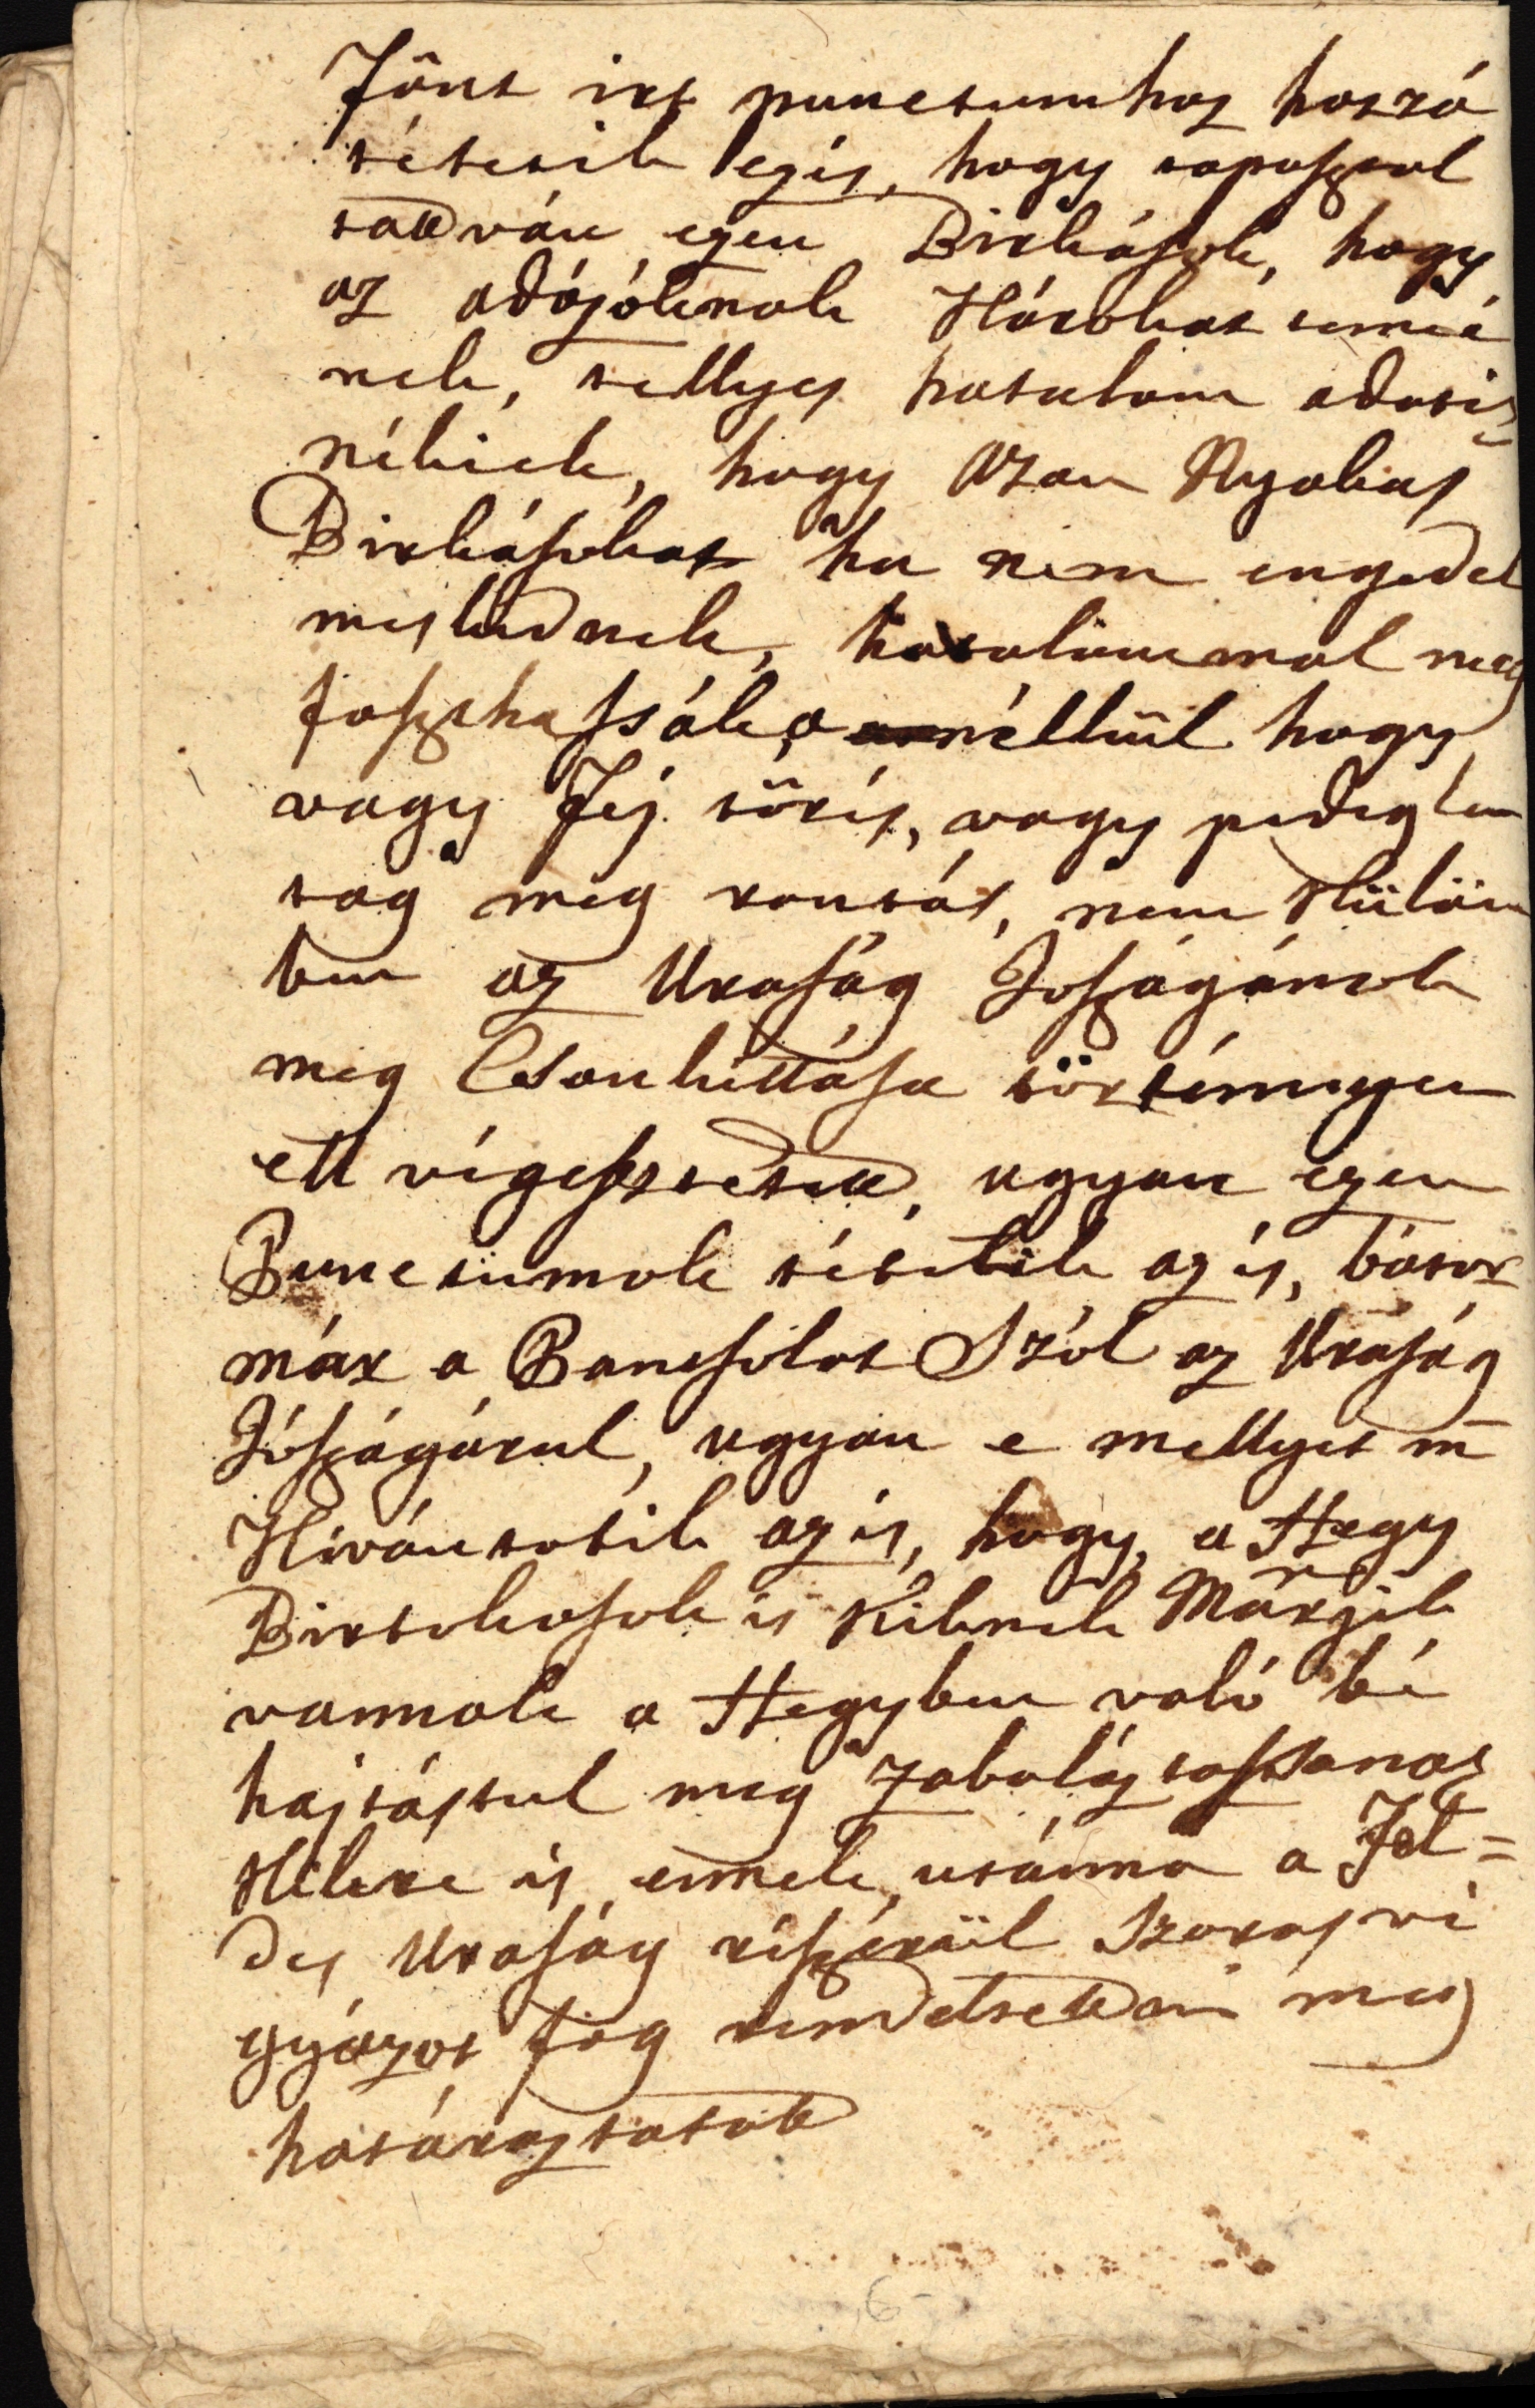 Fönt irt punctumhoz hozzá
tétetik ez is, hogy tapasztal
tatván ezen Birkások, hogy
az adózóknak Károkat tenné
nek, tellyes hatalom adatik
nékiek, hogy azon Nyakas
Birkásokat ha nem engedel
meskednek, hatalommal meg
foszthassák, a nélkül hogy
vagy Fej törés, vagy pedig len
tag meg rontás, nem külöm
ben az Uraság Joszágának
meg Csonkittása történnyen
ell végeztetett, ugyan ezen
Punctumok tétetik az is, bátor
már a Pancsolat Szól az Uraság
Jószágárul, ugyan e mellyet m̄
Kivántatik az is, hogy, a Hegy
Birtokosok is kiknek Márjik
vannak a Hegyben való bé
hajtástul meg zabolásztassanak
Kikre is ennek utánna a Föl=
des Uraság részérül Szoros vi
gyázat fog rendeltettni meg
határoztatott
6